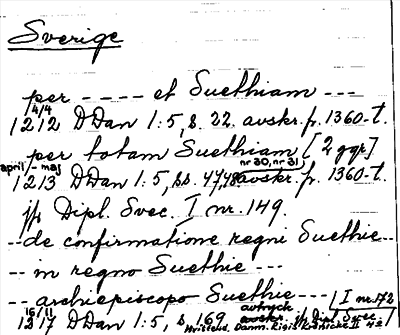 Sverige
per ---- et Suethiam ---
4/4
1212 DDan 1:5, s. 22. avskr. fr. 1360-t.
per totam Suethiam [2 ggr]
april-maj nr 30, nr 31
1213 DDan 1:5, ss. 47, 48 avskr. fr. 1360-t.
jfr Dipl. Svec. I nr. 149.
--de confirmatione regni Suethie--
--in regno Suethie ---
--archiepiscopo Suethie---
16/11 avtryck I nr. 172
1217 DDan 1:5, s. 169 avskr. jfr Dipl. Svec.
Danm. Rigs II